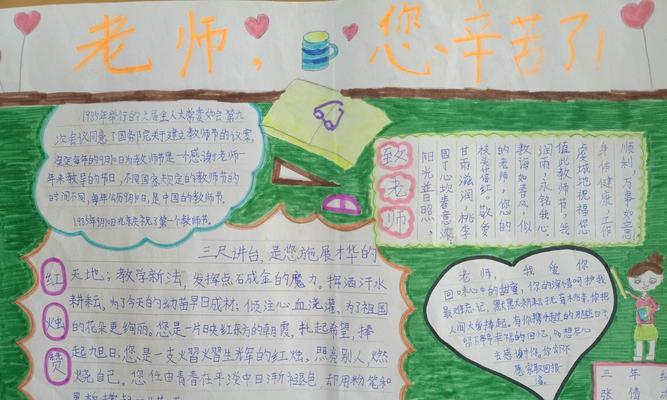 老师，您辛苦了！
1985年举行的六届全人大常委会第九
次会议同意了国务院关于建立教师节的议案，
决定每年的9月10日为教师节是一个感谢老师一
年来教导的节日，不同国家规定的教师节的
时间不同，每年的9月10日，是中国的教师节。
1985年9月10日，北京庆祝了第一个教师节。
致老师
阳光普日照心
园丁心坎春意浓
甘雨滋润，桃李
枝头香红。敬爱
的老师，您的
教诲如春风，似
润雨，永铭我心，
值此教师节，我
虔诚地祝福您：
身体健康，工作
顺利，万事如意
红烛赞
三尺讲台，是您施展才华的
天地；教学新法，发挥点石成金的魔力。挥洒汗水
耕耘，为了今天的幼苗早日成材；倾注心血浇灌，为了祖国
的花朵更绚丽。您是一片映红东方的朝霞，扎起希望，捧
起旭日；您是一支熠熠生辉的红烛，照亮别人，燃
烧自己。您任由青春在平淡中日渐褪色，却用粉笔和
老师，我爱你
回味心中的甜蜜，你的深情呵护我
最难忘记，默默耕耘托有未来，你把
人间大学捧起，有你携手过的
留下最幸福的回忆，
去感谢你，
三年级
张倩